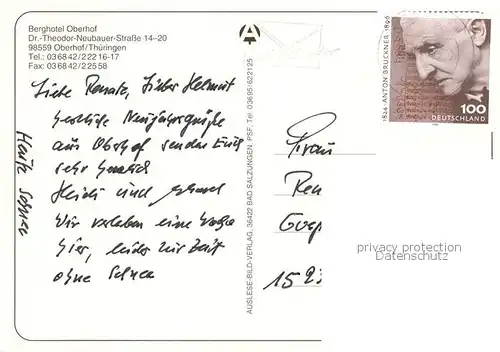 Berghotel Oberhof
Dr.-Theodor-Neubauer-Straße 14–20
98559 Oberhof/Thüringen
Tel.: 03 68 42 / 2 22 16-17
Fax: 03 68 42 / 2 25 58
Liebe Renate, lieber Helmut
herzliche Neujahrsgrüße
aus Oberhof senden Euch
sehr herzlich
Heidi und
Wir verleben eine Woche
hier, leider zur Zeit
ohne Schnee
Heute Schnee
AUSLESE-BILD-VERLAG, 36422 BAD SALZUNGEN, PSF, Tel. 03695/622125
1824 · ANTON BRUCKNER · 1896
100
DEUTSCHLAND
Frau
Ren
privacy protection
Datenschutz